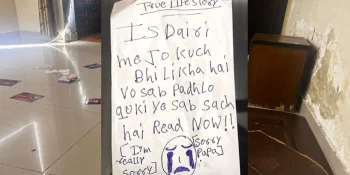 True Life Story
Is Dairi
me Jo kuch
Bhi Likha hai
vo sab Padhlo
quki ye sab sach
hai Read NOW!!
[I'm really sorry]
[Sorry Papa]